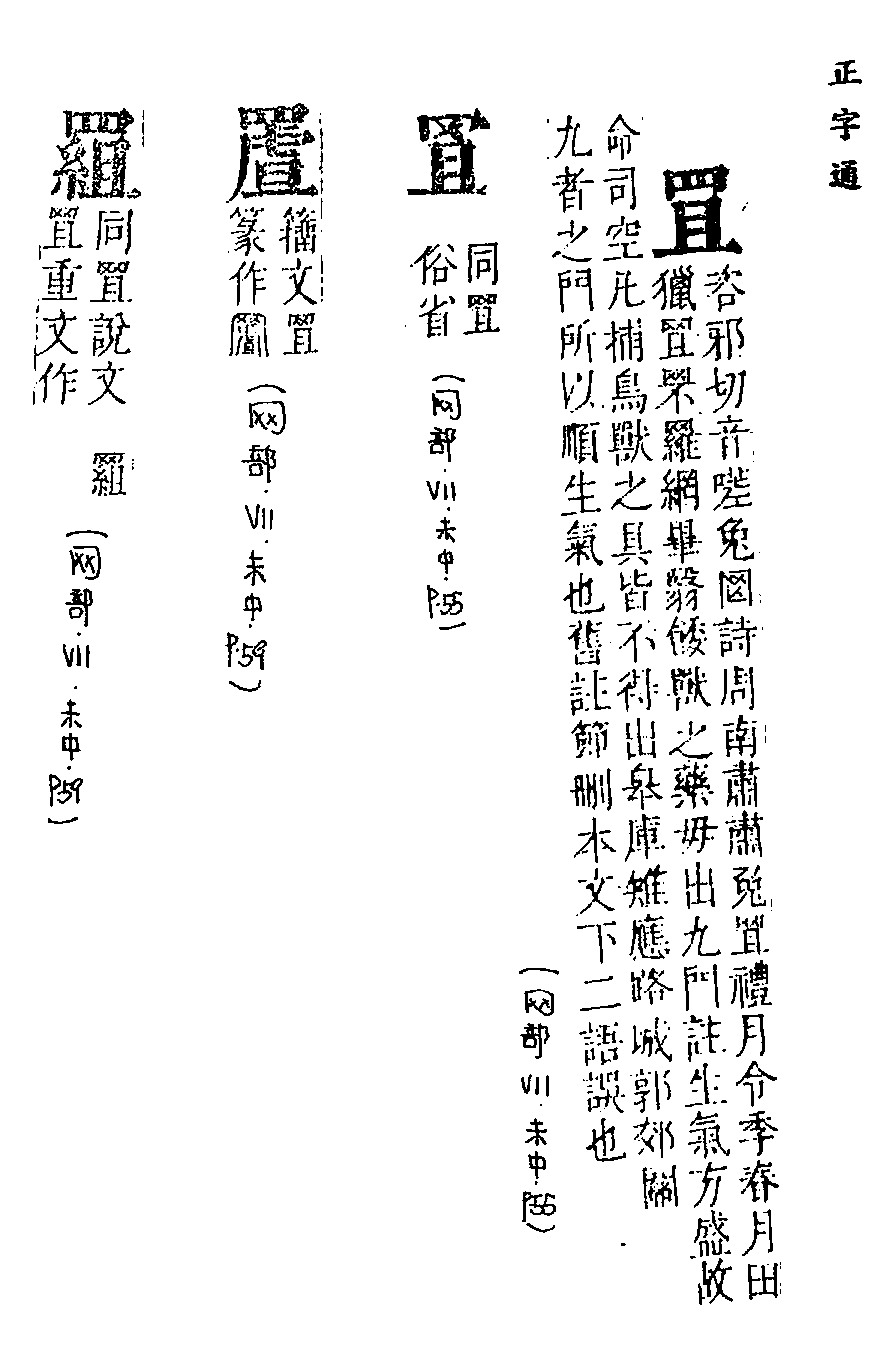 正字通
罝
咨邪切音嗟兔罔詩周南肅肅兎罝禮月令季春月田
獵罝罘羅網畢翳餧獸之藥毋出九門註生氣方盛故
命司空凡捕鳥獸之具皆不得出皋庫雉應路城郭郊關
九者之門所以順生氣也舊註節删本文下二語誤也
(网部.VII.未中.P.55)
同罝
俗省
(网部.VII.未中.P.55)
籀文罝
篆作
(网部.VII.未中.P.59)
同罝說文
罝重文作
(网部.VII.未中.P.59)